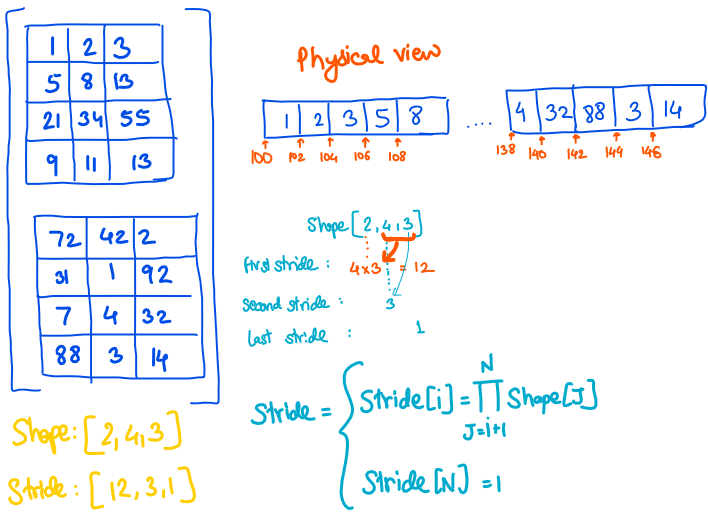 1 2 3
5 8 13
21 34 55
9 11 13
72 42 2
31 1 92
7 4 32
88 3 14
Shape: [2,4,3]
Stride: [12,3,1]
Physical view
1 2 3 5 8 .... 4 32 88 3 14
100 102 104 106 108 138 140 142 144 146
Shape [2,4,3]
first stride: 4x3 = 12
second stride: 3
last stride: 1
Stride = { Stride[i] = ∏ᴺ_{J=i+1} Shape[J]
Stride[N] = 1